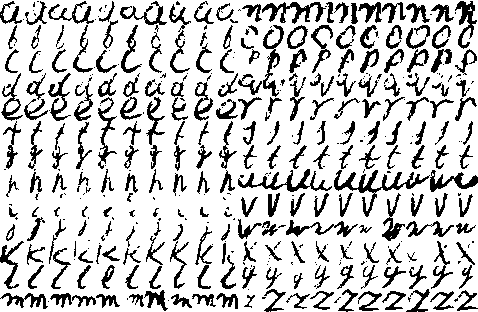 a a a a a a a a a a n n n n n n n n n n
b b b b b b b b b b o o o o o o o o o o
c c c c c c c c c c p p p p p p p p p p
d d d d d d d d d d q q q q q q q q q q
e e e e e e e e e e r r r r r r r r r r
f f f f f f f f f f s s s s s s s s s s
g g g g g g g g g g t t t t t t t t t t
h h h h h h h h h h u u u u u u u u u u
i i i i i i i i i i v v v v v v v v v v
j j j j j j j j j j w w w w w w w w w w
k k k k k k k k k k x x x x x x x x x x
l l l l l l l l l l y y y y y y y y y y
m m m m m m m m m m z z z z z z z z z z